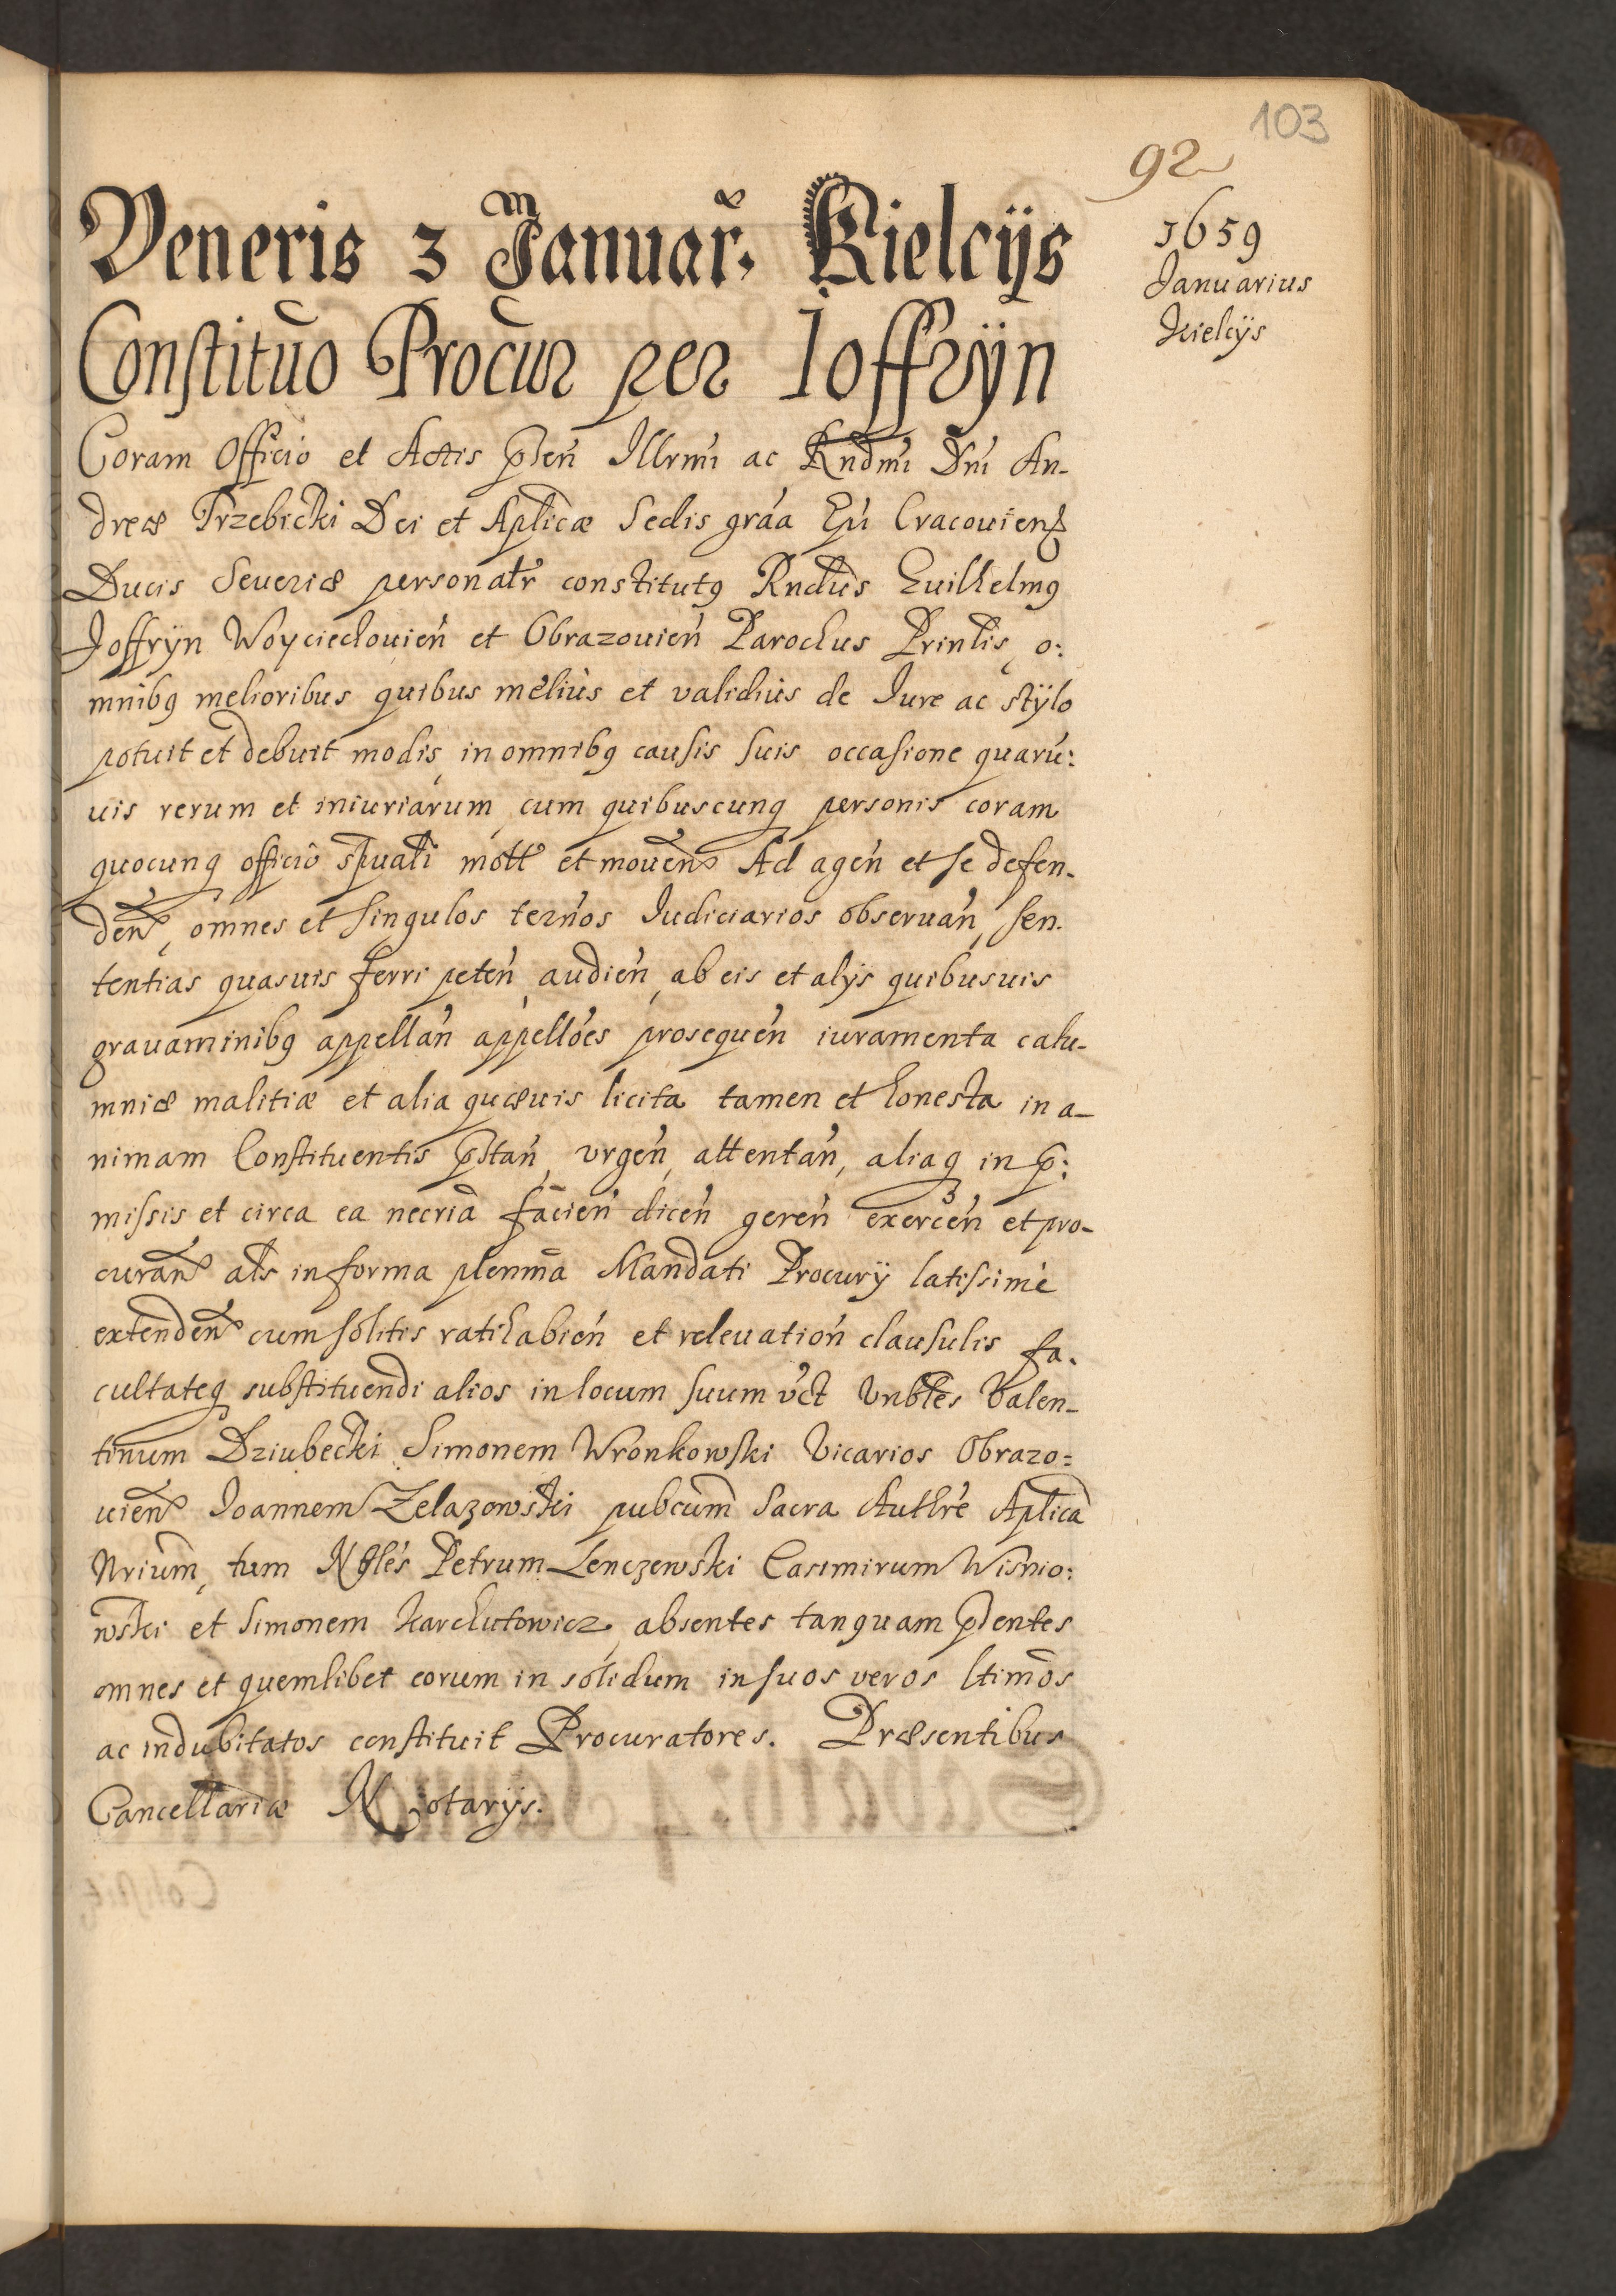 103
92
1659
Januarius
Kielcijs
Veneris 3 Januar. Kielcijs
Constituo Procur per Joffrÿn
Coram Officio et Actis pñten Illrmi ac Rndmi Dni An-
dreæ Trzebicki Dei et Aplicæ Sedis gráa Epi Cracouien
Ducis Seueriæ personalr constitutq Rndus Guilhelmq
Joffrÿn Woyciechouien et Obrazouien Parochus Prinlis, o:
mnibq melioribus quibus melius et validius de Jure ac stÿlo
potuit et debuit modis, in omnibq causis suis occasione quaru:
uis rerum et iniuriarum, cum quibuscunq personis coram
quocunq officio spuali mott et mouen Ad agen et se defen-
den, omnes et singulos ternos Judiciarios obseruan, sen-
tentias quasuis ferri peten, audien, ab eis et alijs quibusuis
grauaminibq appellan appellóes prosequen iuramenta calu-
mniæ malitiæ et alia quæuis licita tamen et honesta in a-
nimam Constituentis pstan, vrgen, attentan, aliaq in p:
missis et circa ea necria facien dicen geren exercen et pro-
curan als in forma plenma Mandati Procurij latissime
extenden cum solitis ratihabien et releuation clausulis fa-
cultateq substituendi alios in locum suum vct Vnbles Valen-
tinum Dziubecki Simonem Wronkowski Vicarios Obrazo=
uien Joannem Zelazowski pubcum Sacra Authre Aplica
Nrium, tum Nobles Petrum Lenczewski Casimirum Wisnio:
wski et Simonem Karchutowicz, absentes tanquam pñtes
omnes et quemlibet eorum in solidum in suos veros ltimos
ac indubitatos constituit Procuratores. Præsentibus
Cancellariæ Notarijs.